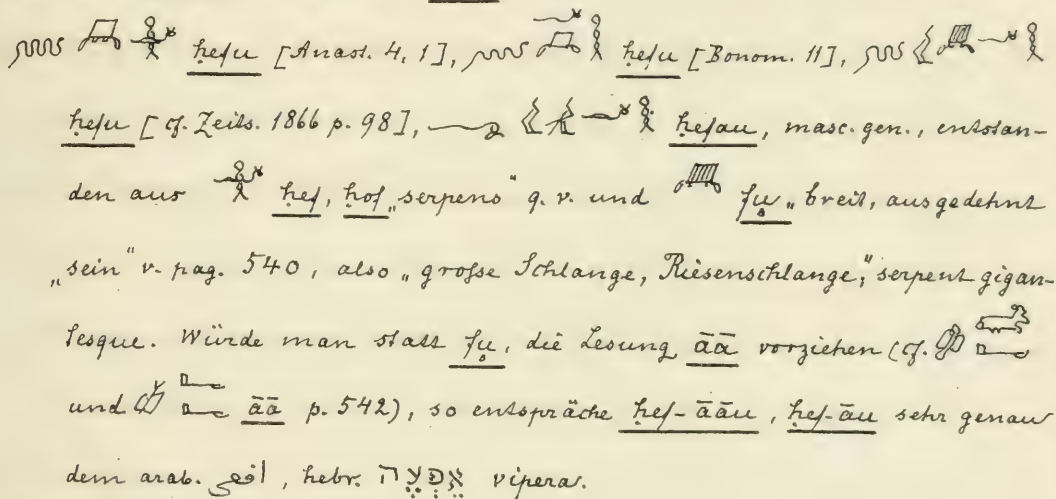 ḥefu [Anast. 4, 1], ḥefu [Bonom. 11],
ḥefu [cf. Zeits. 1866 p. 98], ḥefau, masc. gen., entstan-
den aus ḥef, ḥof „serpens" q. v. und fu̥ „breit, ausgedehnt
„sein" v. pag. 540, also „grosse Schlange, Riesenschlange," serpent gigan-
tesque. Würde man statt fu̥, die Lesung āā vorziehen (cf.
und āā p. 542), so entspräche ḥef-āāu, ḥef-āu sehr genau
dem arab. افعى, hebr. אֶפְעֶה vipera.